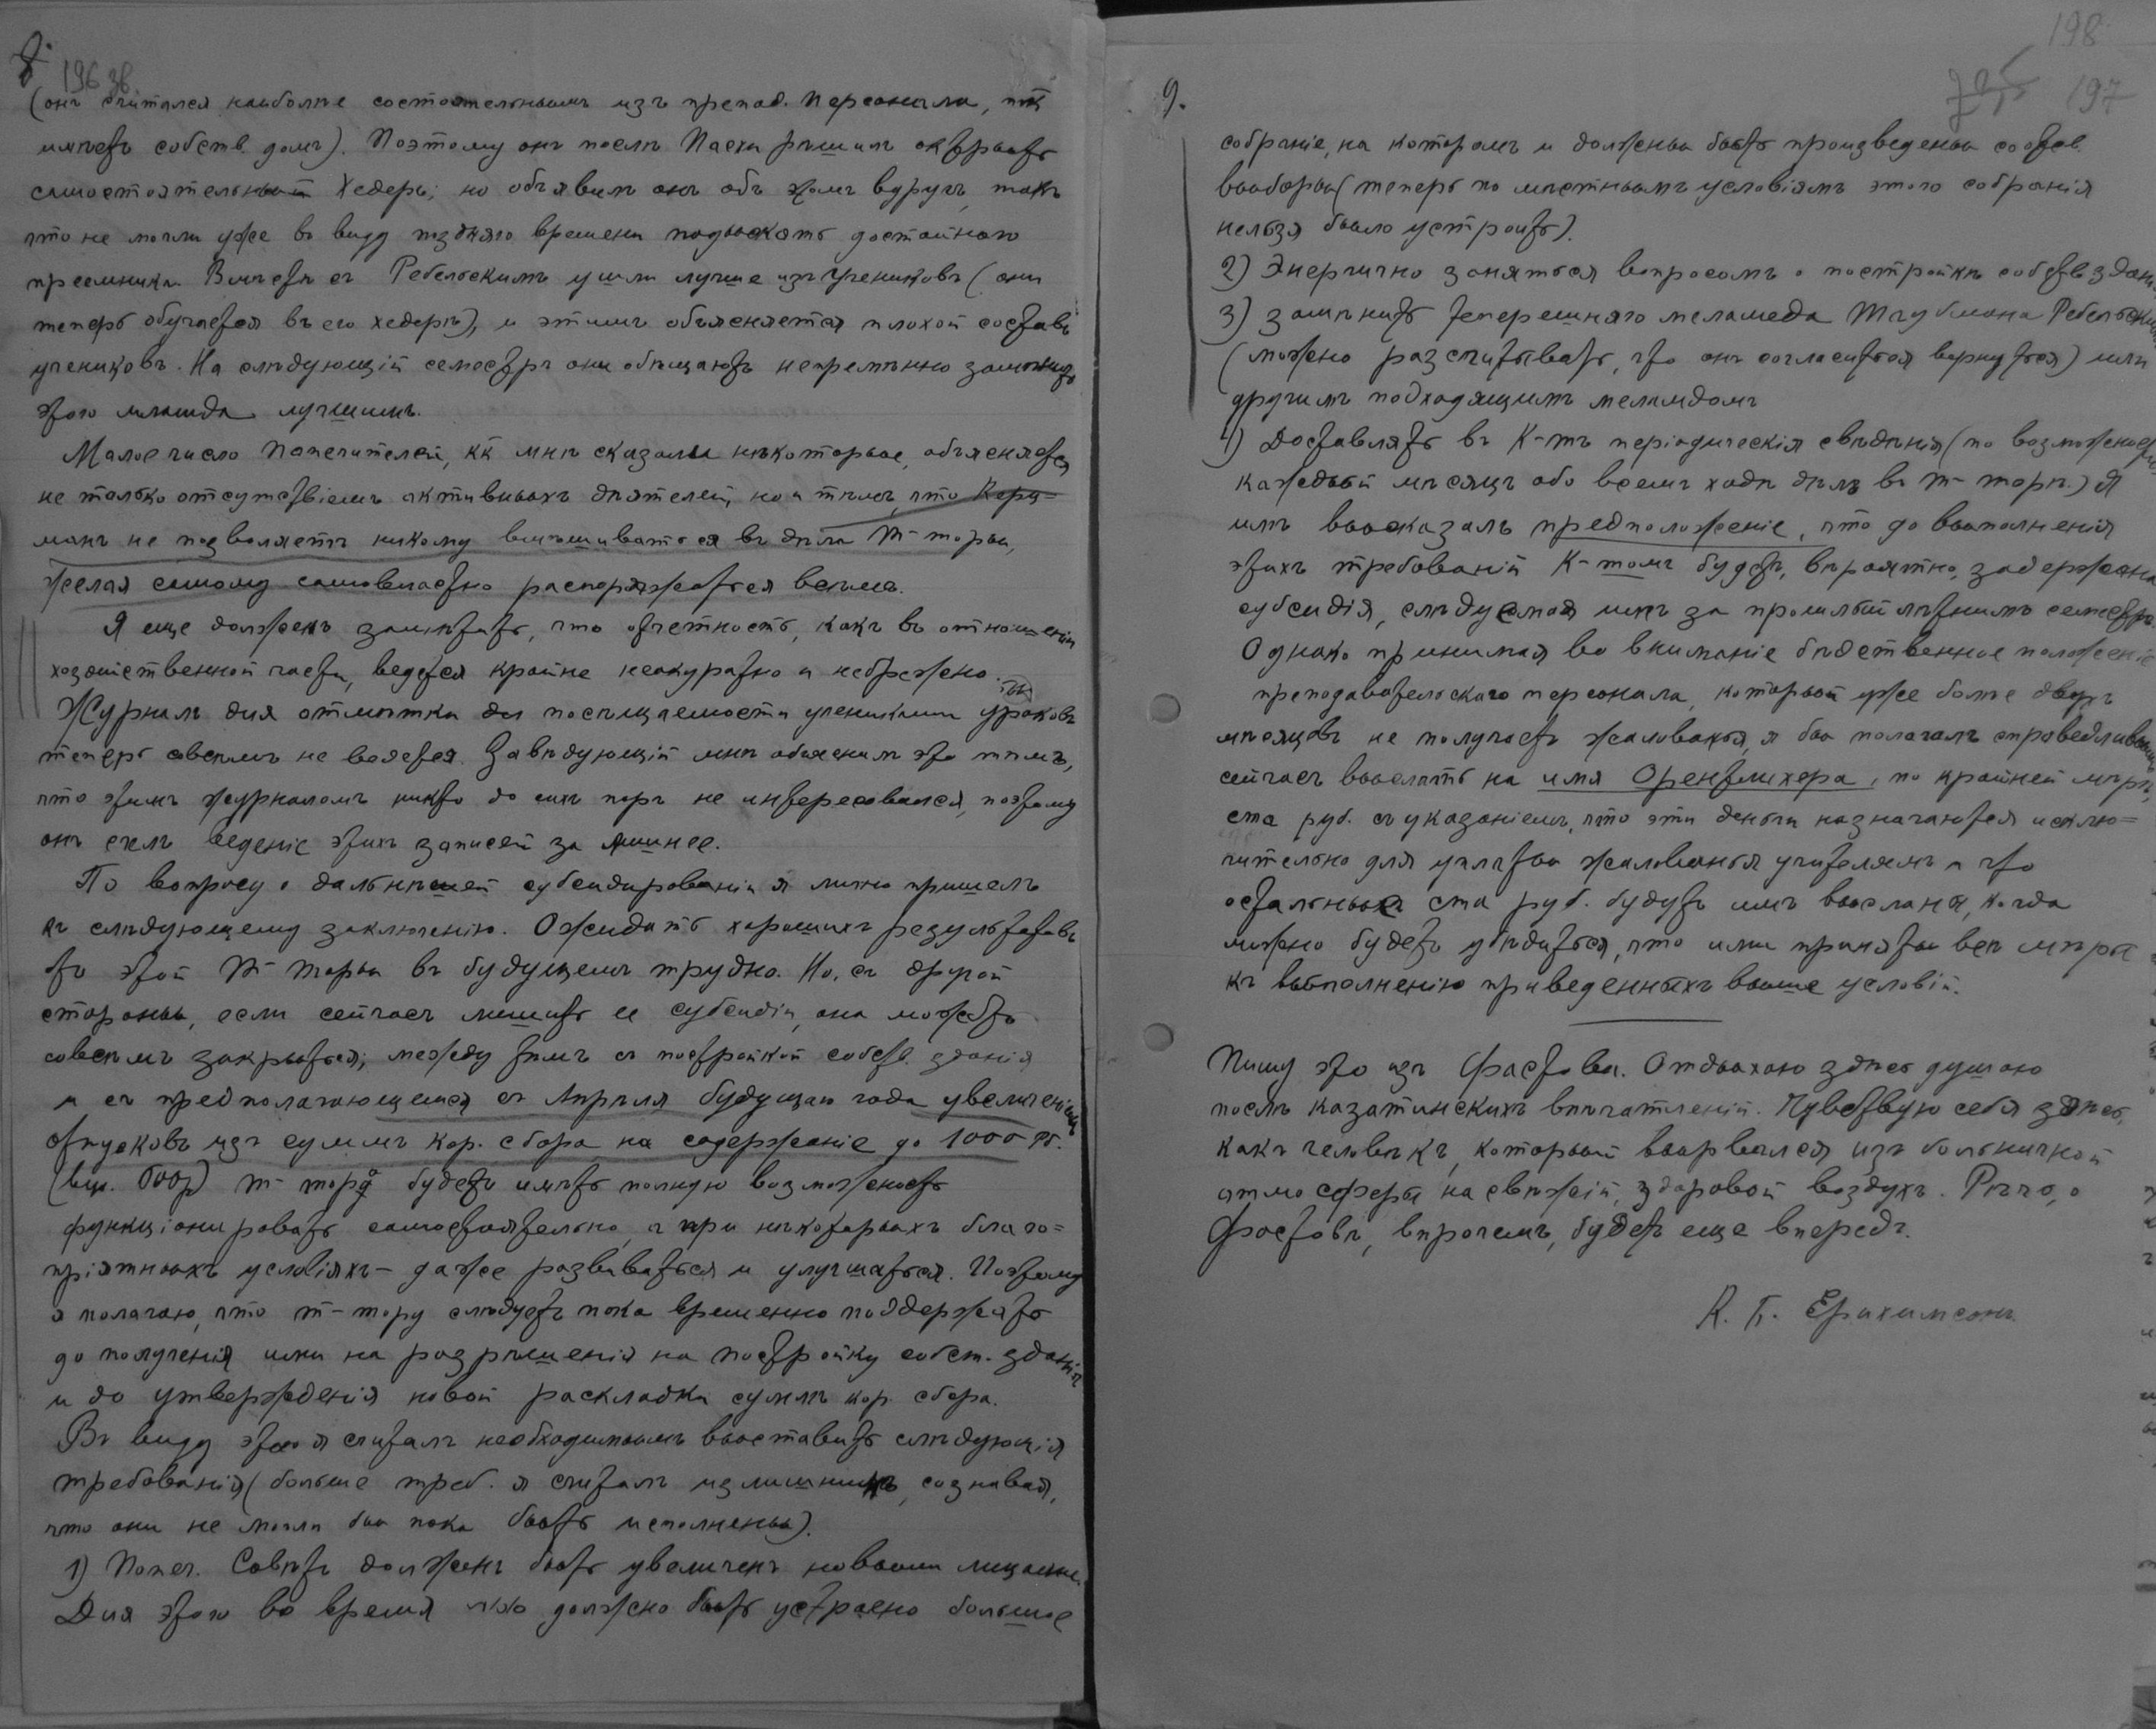 8.
196 зв.
(онъ считался наиболѣе состоятельнымъ изъ препод. персонала, ибо
имѣетъ собств. домъ). Поэтому онъ послѣ Пасхи рѣшилъ открыть
самостоятельный хедеръ; но объявилъ онъ объ этомъ вдругъ, такъ
что не могли уже въ виду поздняго времени подыскать достойнаго
преемника. Вмѣстѣ съ Ребельскимъ ушли лучшие изъ учениковъ (они
теперь обучаются въ его хедерѣ), и этимъ объясняется плохой составъ
учениковъ. На слѣдующій семестръ они обѣщаютъ непремѣнно замѣнить
этого меламда лучшимъ.
Малое число попечителей, кк мнѣ сказали нѣкоторые, объясняется
не только отсутствіемъ активныхъ дѣятелей, но и тѣмъ, что Кери-
манъ не позволяетъ никому вмѣшиваться въ дѣла Т-торы,
желая самому самовластно распоряжаться всѣмъ.
Я еще долженъ замѣтить, что отчетность, какъ въ отношеніи
хозяйственной части, ведется крайне неакуратно и небрежно.
Журналъ для отмѣтки посѣщаемости учениками уроковъ
теперь совсѣмъ не ведется. Завѣдующій мнѣ объяснилъ это тѣмъ,
что этимъ журналомъ никто до сихъ поръ не интересовался, поэтому
онъ счелъ веденіе этихъ записей за лишнее.
По вопросу о дальнѣйшей субсидированіи я лично пришелъ
къ слѣдующему заключенію. Ожидать хорошихъ результатовъ
отъ этой Т-торы въ будущемъ трудно. Но, съ другой
стороны, если сейчасъ лишить ее субсидіи, она можетъ
совсѣмъ закрыться; между тѣмъ съ постройкой собств. зданія
и съ предполагающемся съ Апрѣля будущаго года увеличеніемъ
отпусковъ изъ суммъ кор. сбора на содержаніе до 1000 рб.
(вм. 600р) т-тора будетъ имѣть полную возможность
функціонировать самостоятельно, а при нѣкоторыхъ благо-
пріятныхъ условіяхъ - даже развиваться и улучшаться. Поэтому
я полагаю, что т-тору слѣдуетъ пока временно поддержать
до полученія ими на разрѣшенія на постройку собст. зданія
и до утвержденія новой раскладки суммъ кор. сбора.
Въ виду этого я считалъ необходимымъ выставить слѣдующія
требованія (больше треб. я считалъ излишнимъ, сознавая,
что они не могли бы пока быть исполнены).
1) Попеч. Совѣтъ долженъ быть увеличенъ новыми лицами.
Для этого во время должно быть устроено большое
198
197
9.
собраніе, на которомъ и должны быть произведены соотв.
выборы (теперь по мѣстнымъ условіямъ этого собранія
нельзя было устроить).
2) Энергично заняться вопросомъ о постройкѣ собств. здан.
3) замѣнить теперешняго меламеда Таубмана Ребельскимъ
(можно разсчитывать, что онъ согласится вернуться) или
другимъ подходящимъ меламдомъ
4) Доставлять въ К-тъ періодическія свѣдѣнія (по возможности
каждый мѣсяцъ обо всемъ ходѣ дѣлъ въ Т-торѣ.) Я
имъ высказалъ предположеніе, что до выполненія
этихъ требованій К-томъ будетъ, вѣроятно, задержана
субсидія, слѣдуемая имъ за прошлый лѣтнимъ семестръ.
Однако принимая во вниманіе бѣдственное положеніе
преподавательскаго персонала, который уже болѣе двухъ
мѣсяцовъ не получаетъ жалованья, я бы полагалъ справедливымъ
сейчасъ выслать на имя Оренблихера, по крайней мѣрѣ,
ста руб. съ указаніемъ, что эти деньги назначаются исклю-
чительно для уплаты жалованья учителямъ и что
остальные ста руб. будутъ имъ высланы, когда
можно будетъ убѣдиться, что ими приняты всѣ мѣры
къ выполненію приведенныхъ выше условій.
Пишу это изъ Фастова. Отдыхаю здѣсь душою
послѣ казатинскихъ впечатлѣній. Чувствую себя здѣсь,
какъ человѣкъ, который вырвался изъ больничной
атмосферы на свѣжій, здоровой воздухъ. Рѣчь о
Фастовѣ, впрочемъ, будетъ еще впереди.